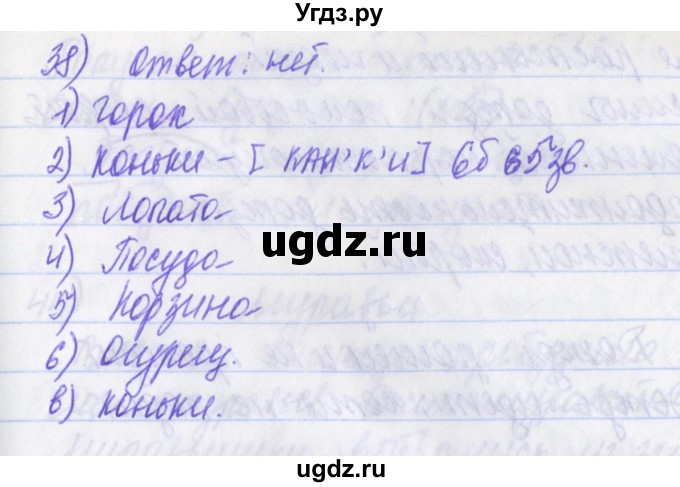 Угдз.ру
38) Ответ: нет.
1) Горох
2) Коньки - [ КАН'К'И ] 6б 65 зв.
3) Лопата
ugdz.ru
4) Посуда
5) Корзина
6) Огурец.
в) Коньки.
ugdz.ru